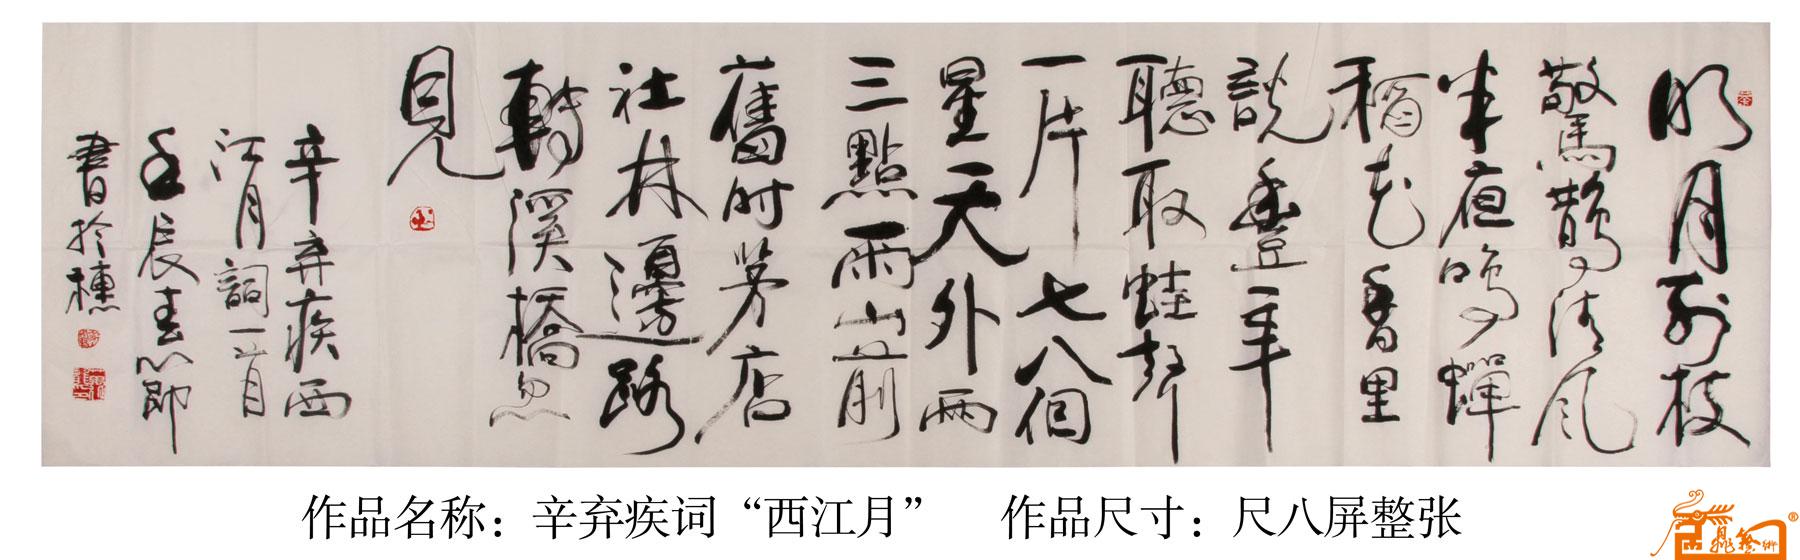 明月别枝
驚鵲清風
半夜鳴蟬
稻花香里
說豐年
聽取蛙聲
一片七八個
星天外兩
三點雨山前
舊时茅店
社林邊路
轉溪橋忽
見
辛弃疾西
江月詞一首
壬辰春節
書於穗
作品名称：辛弃疾词“西江月” 作品尺寸：尺八屏整张